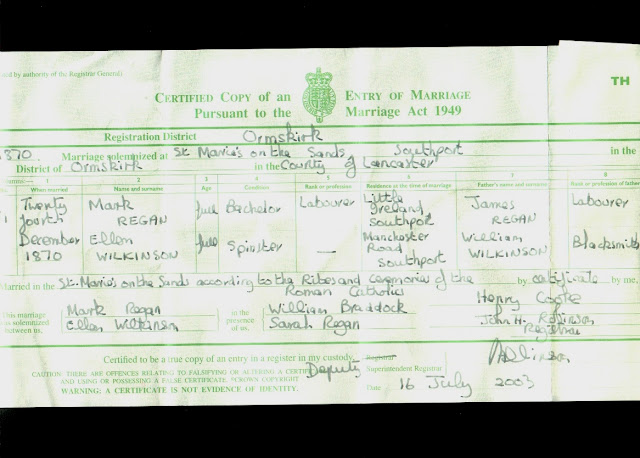 ued by authority of the Registrar General)
TH
CERTIFIED COPY of an ENTRY OF MARRIAGE
Pursuant to the Marriage Act 1949
Registration District Ormskirk
1870. Marriage solemnized at St. Marie's on the Sands Southport in the
District of Ormskirk in the County of Lancaster
1 2 3 4 5 6 7 8
When married Name and surname Age Condition Rank or profession Residence at the time of marriage Father's name and surname Rank or profession of father
Twenty Mark full Bachelor Labourer Little James Labourer
fourth REGAN Ireland REGAN
Southport
December Ellen full Spinster — Manchester William Blacksmith
1870 WILKINSON Road WILKINSON
Southport
Married in the St. Marie's on the Sands according to the Rites and ceremonies of the by certificate by me,
Roman Catholics
This marriage Mark Regan in the William Braddock Henry Cooke
is solemnized Ellen Wilkinson presence Sarah Regan John H. Robinson
between us, of us, Registrar
Certified to be a true copy of an entry in a register in my custody.
Registrar
Deputy Superintendent Registrar
CAUTION: THERE ARE OFFENCES RELATING TO FALSIFYING OR ALTERING A CERTIF
AND USING OR POSSESSING A FALSE CERTIFICATE. ©CROWN COPYRIGHT
WARNING: A CERTIFICATE IS NOT EVIDENCE OF IDENTITY.
Date 16 July 2003